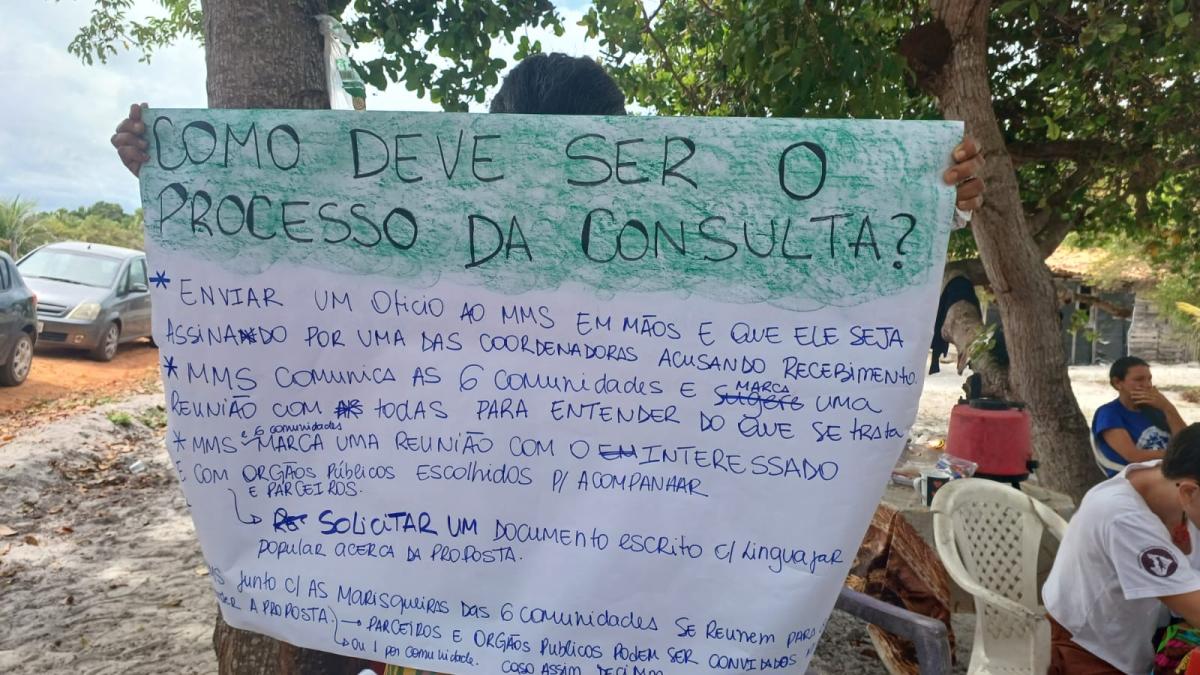 COMO DEVE SER O
PROCESSO DA CONSULTA?
* ENVIAR UM OFÍCIO AO MMS EM MÃOS E QUE ELE SEJA
ASSINADO POR UMA DAS COORDENADORAS ACUSANDO RECEBIMENTO.
* MMS COMUNICA AS 6 COMUNIDADES E MARCA UMA
REUNIÃO COM TODAS PARA ENTENDER DO QUE SE TRATA
* MMS e 6 comunidades MARCA UMA REUNIÃO COM O INTERESSADO
E COM ORGÃOS PÚBLICOS ESCOLHIDOS P/ ACOMPANHAR
E PARCEIROS.
↳ SOLICITAR UM DOCUMENTO ESCRITO C/ LINGUAJAR
POPULAR ACERCA DA PROPOSTA.
JUNTO C/ AS MARISQUEIRAS DAS 6 COMUNIDADES SE REUNEM PARA
A PROPOSTA. → PARCEIROS E ORGÃOS PUBLICOS PODEM SER CONVIDADOS
↳ OU 1 POR COMUNIDADE. CASO ASSIM